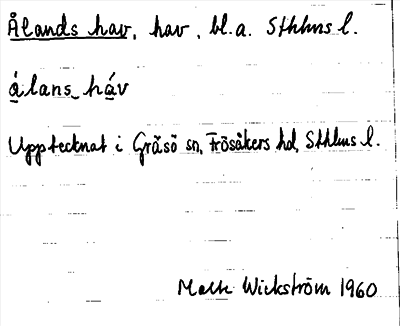 Ålands hav, hav, bl.a. Sthlms l.
álans_háv
Upptecknat i Gräsö sn, Frösåkers hd, Sthlms l.
Wickström 1960